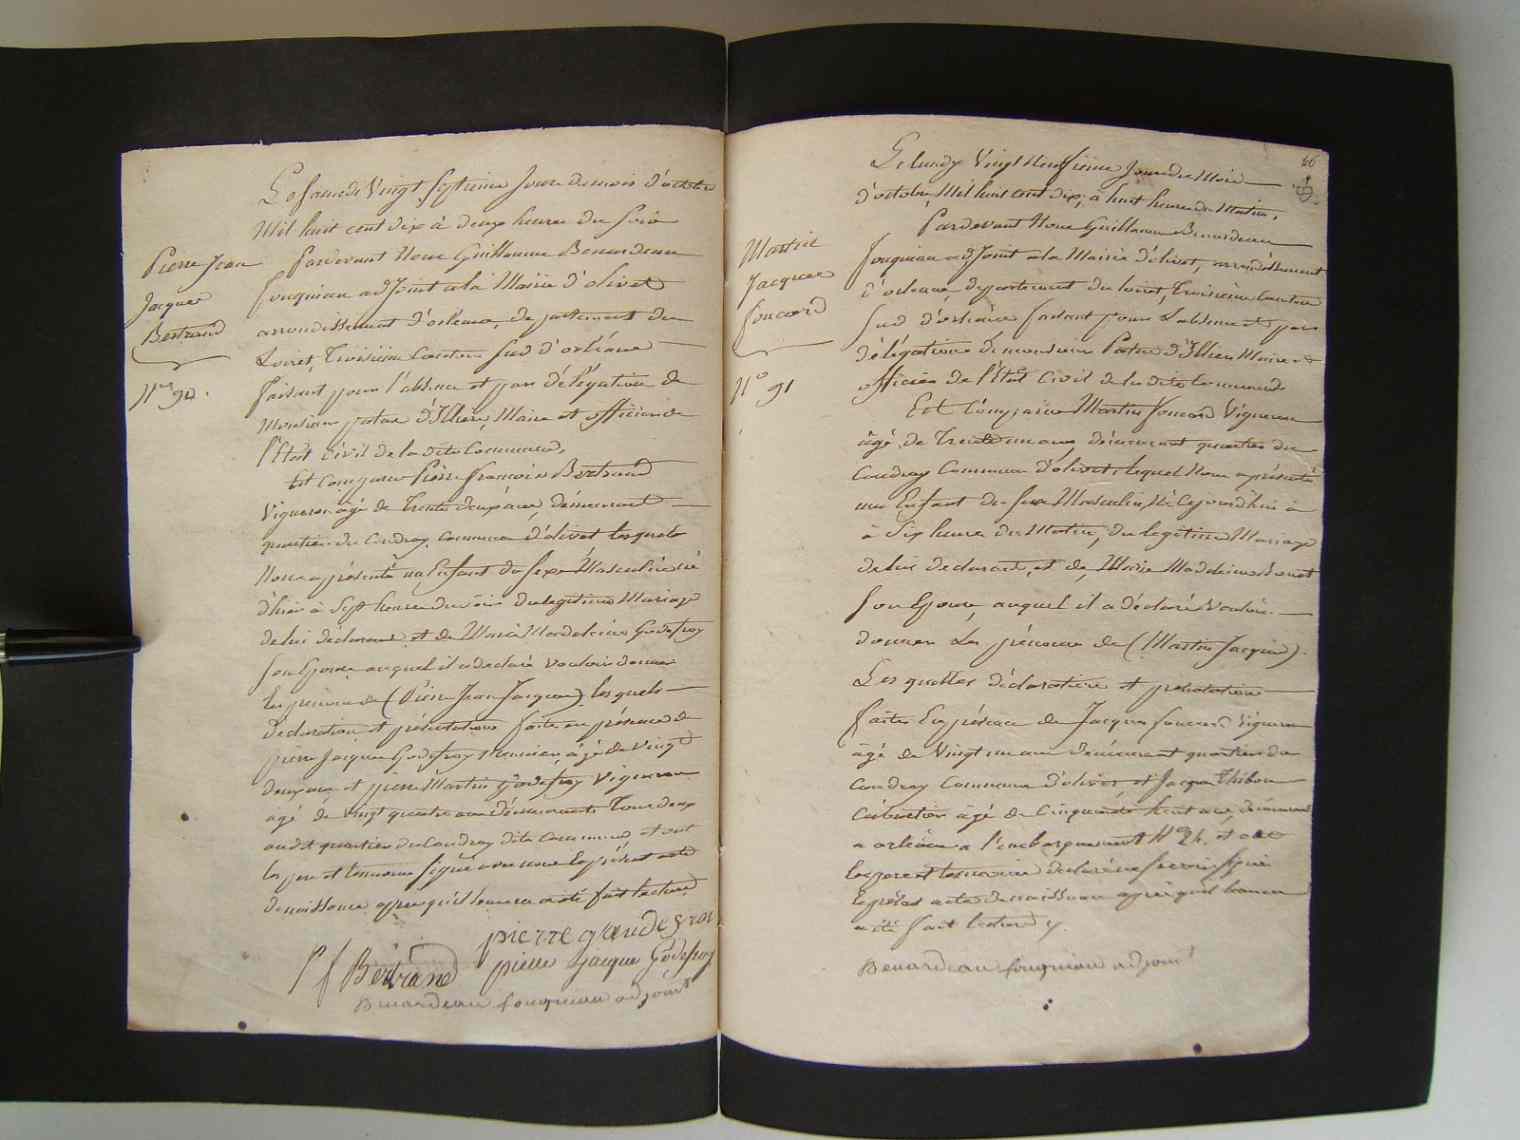 Pierre Jean
Jacques
Bertrand
N° 90.
Le samedi Vingt Septieme Jour du mois d'octobre
Mil huit cent dix à deux heure du soir
pardevant Nous Guillaume Benardeau
fouqueau adjoint a la Mairie d'olivet
arrondissement d'orleans, departement du
Loiret, Troisieme Canton Sud d'orléans
faisant pour l'absence et par délégation de
Monsieur patas d'Illiers, Maire et officier de
l'Etat Civil de la dite Commune,
Est Comparu Pierre françois Bertrand
Vigneron âgé de Trente deux ans, demeurant
quartier du Coudray commune d'olivet lesquels
Nous a présenté un Enfant du sexe Masculin né
d'hier à Sept heure du soir du legitime Mariage
de lui déclarant et de Marie Madeleine Godefroy
son Epouse auquel il a declaré Vouloir donner
les prenoms de (Pierre Jean Jacques) lesquels
declaration et présentation faite en présence de
pierre Jacques Godefroy âgé de Vingt
deux ans et pierre Martin Godefroy Vigneron
agé de Vingt quatre ans demeurants Tous deux
audit quartier du Coudray dite commune et ont
les pere et temoins signé avec nous le présent acte
de naissance apres qu'il leur en a été fait lecture
pierre gaudefroi
P f Bertrand pierre Jacque Godefroy
Benardeau fouqueau adjoint
46
Martin
Jacques
foucard
N° 91
Le lundy Vingt Neufvieme Jour du Mois
d'octobre Mil huit cent dix, à huit heure du Matin,
Pardevant Nous Guillaume Benardeau
fouqueau adjoint a la Mairie d'olivet, arrondissement
d'orleans, departement du loiret, Troisieme Canton
Sud d'orléans faisant pour L'absence et par
délégation de monsieur Patas d'Illiers Maire et
officier de l'Etat Civil de la dite Commune
Est Comparu Martin foucard Vigneron
âgé de Trente un ans, demeurant quartier du
Coudray Commune d'olivet, lequel Nous a présenté
un Enfant du sexe Masculin, Né Cejourd'hui à
à Six heure du Matin, du legitime Mariage
de lui declarant, et de Marie Madeleine
son Epouse, auquel il a déclaré Vouloir
donner Les prénoms de (Martin Jacques).
Les quelles déclaration et présentation
faites En présence de Jacques foucard Vigneron
âgé de Vingt un ans demeurant quartier du
Coudray Commune d'olivet et Jacques Thibou
Cabaretier âgé de Cinquante huit ans, demeurant
a orléans a l'embarquement N° 24. et ont
les pere et temoins declaré ne savoir signé
le présent acte de naissance apres quil leur en
a été fait lecture
Benardeau fouqueau adjoint